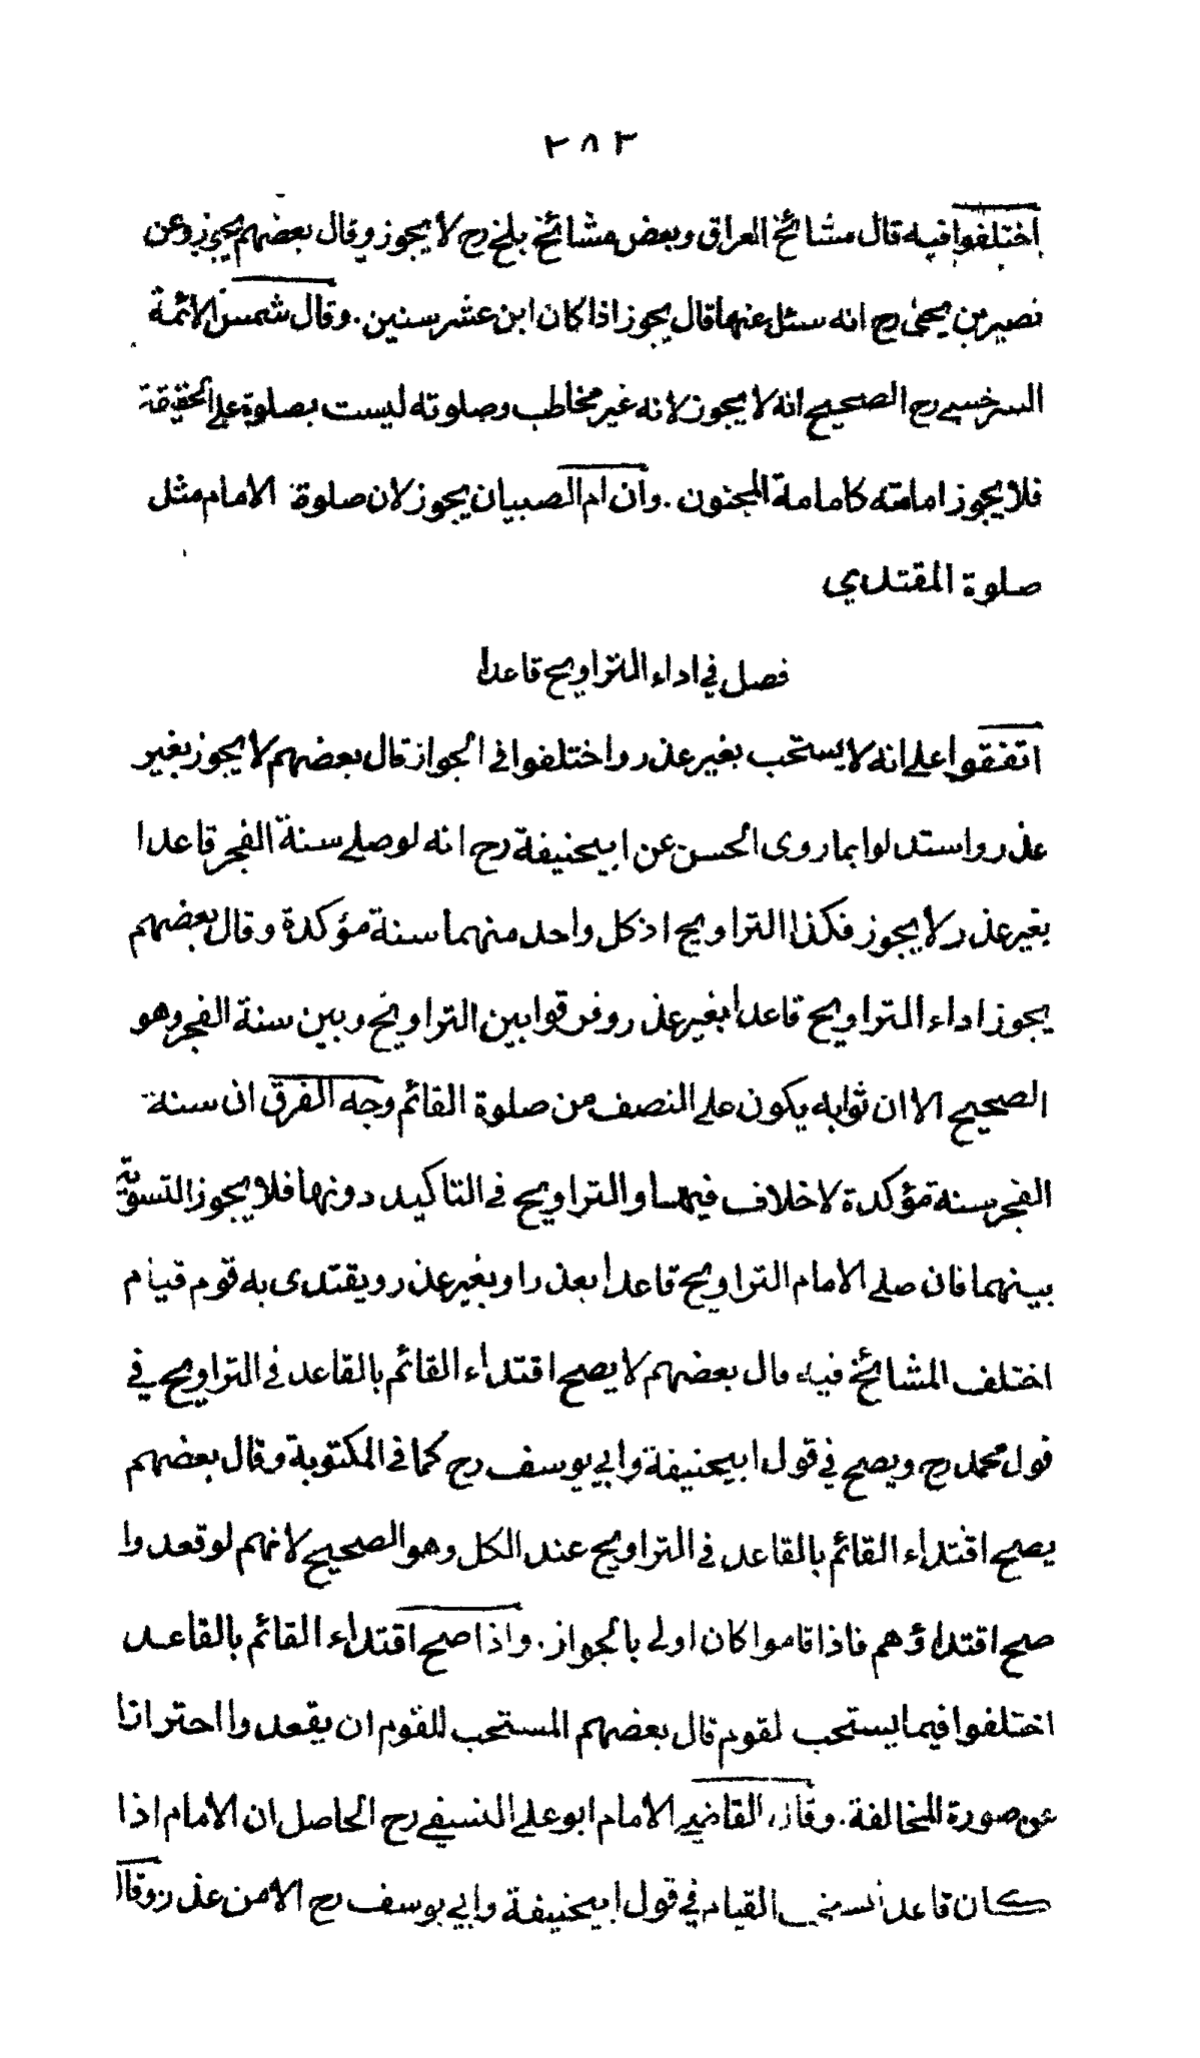 ٢٨٣
اختلفوا فيه قال مشائخ العراق وبعض مشائخ بلخ رح لا يجوز وقال بعضهم يجوز وعن
نصير بن يحيى رح انه سئل عنها قال يجوز اذا كان ابن عشر سنين . وقال شمس الائمة
السرخسي رح الصحيح انه لا يجوز لانه غير مخاطب وصلوته ليست بصلوة على الحقيقة
فلا يجوز امامته كامامة المجنون . وان ام الصبيان يجوز لان صلوة الامام مثل
صلوة المقتدي
فصل في اداء التراويح قاعدا
اتفقوا على انه لا يستحب بغير عذر واختلفوا في الجواز قال بعضهم لا يجوز بغير
عذر واستدلوا بما روى الحسن عن ابيحنيفة رح انه لو صلى سنة الفجر قاعدا
بغير عذر لا يجوز فكذا التراويح اذ كل واحد منهما سنة مؤكدة وقال بعضهم
يجوز اداء التراويح قاعدا بغير عذر وفرقوا بين التراويح وبين سنة الفجر وهو
الصحيح الا ان ثوابه يكون على النصف من صلوة القائم وجه الفرق ان سنة
الفجر سنة مؤكدة لا خلاف فيها والتراويح في التاكيد دونها فلا يجوز التسوية
بينهما فان صلى الامام التراويح قاعدا بعذر او بغير عذر ويقتدى به قوم قيام
اختلف المشائخ فيه قال بعضهم لا يصح اقتداء القائم بالقاعد في التراويح في
قول محمد رح ويصح في قول ابيحنيفة وابي يوسف رح كما في المكتوبة وقال بعضهم
يصح اقتداء القائم بالقاعد في التراويح عند الكل وهو الصحيح لانهم لو قعدوا
صح اقتداؤهم فاذا قاموا كان اولى بالجواز . واذا صح اقتداء القائم بالقاعد
اختلفوا فيما يستحب لقوم قال بعضهم المستحب للقوم ان يقعدوا احترازا
عن صورة المخالفة . وقال القاضي الامام ابو علي النسفي رح الحاصل ان الامام اذا
كان قاعدا القيام في قول ابيحنيفة وابي يوسف رح الا من عذر وقالا